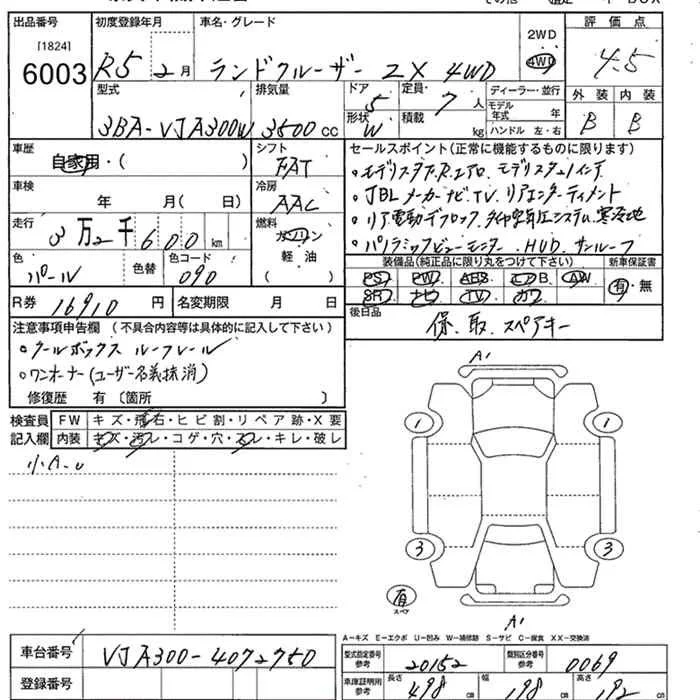 出品番号 初度登録年月 車名・グレード 評価点
[1824]
6003
R5 2月 ランドクルーザー ZX 4WD
2WD
4WD
4.5
型式 排気量 ドア 定員 ディーラー・並行 外装 内装
3BA-VJA300W 3500cc 5 7人 モデル年式 年 B B
形状 W 積載 kg ハンドル 左・右
車歴 シフト セールスポイント(正常に機能するものに限ります)
自家用・( ) FAT
・モデリスタF.R.エアロ.モデリスタ21インチ
車検 冷房
年 月( 日) AAC
・JBLメーカーナビ.TV.リアエンターテイメント
走行 3万2千600km 燃料 ガソリン
・リア電動デフロック.タイヤ空気圧システム.寒冷地
軽油
( )
・パノラミックビューモニター.HUD.サンルーフ
色 パール 色替 色コード 090
装備品(純正品に限り丸をつけて下さい) 新車保証書
PS PW ABS エアB AW 有・無
SR ナビ TV カワ
R券 16910円 名変期限 月 日
後日品 保.取.スペアキー
注意事項申告欄 (不具合内容等は具体的に記入して下さい)
・クールボックス ルーフレール
・ワンオーナー(ユーザー名義抹消)
修復歴 有〔箇所 〕
検査員 FW キズ・飛石・ヒビ割・リペア跡・X要
記入欄 内装 キズ・汚レ・コゲ・穴・スレ・キレ・破レ
小A.U
A1
1 1
3 3
有
スペア
A1
A-キズ E-エクボ U-凹み W-補修跡 S-サビ C-腐食 XX-交換済
車台番号 VJA300-4072750
型式指定番号 参考 20152 類別区分番号 参考 0069
登録番号
車庫証明用 参考 長さ 498cm 幅 198cm 高さ 192cm